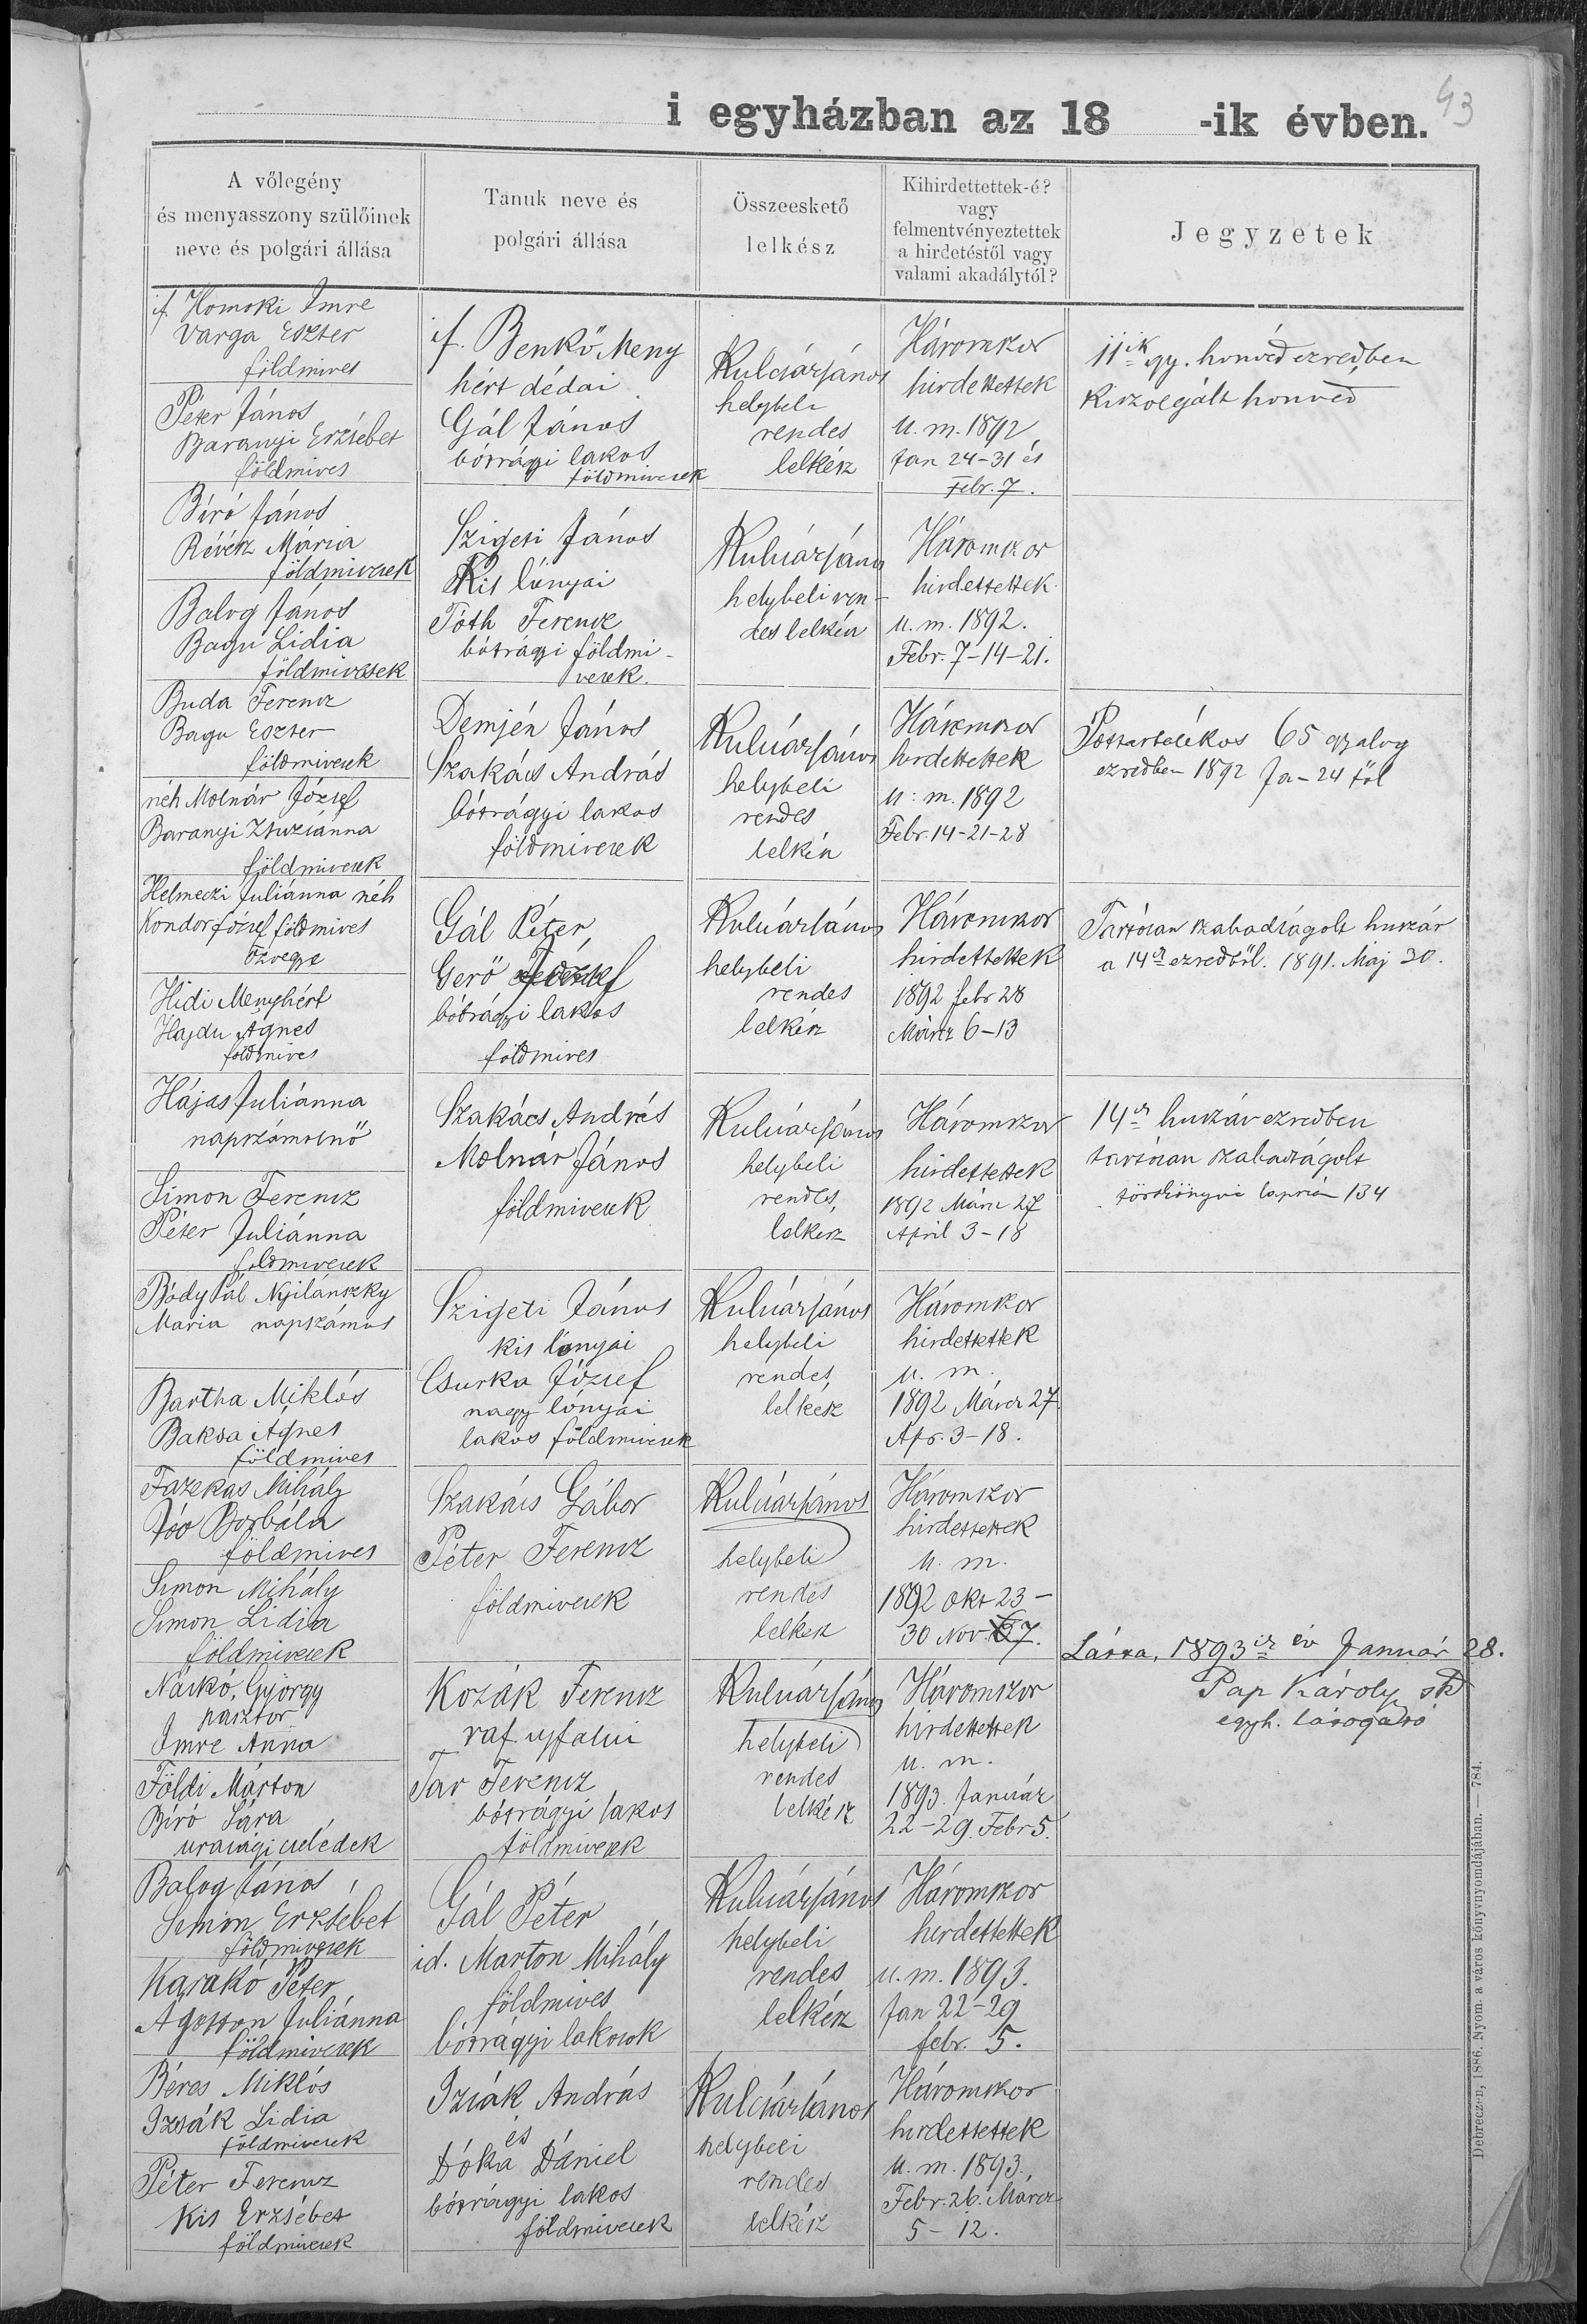 43
i egyházban az 18 -ik évben.
A vőlegény
és menyasszony szülőinek
neve és polgári állása
Tanuk neve és
polgári állása
Összeeskető
lelkész
Kihirdettettek-é?
vagy
felmentvényeztettek
a hirdetéstől vagy
valami akadálytól?
Jegyzetek
if. Homoki Imre
Varga Eszter
földmives
Péter János
Baranyi Erzsébet
földmives
if. Benkő Meny
hért dédai
Gál János
bótrágyi lakos
földmivesek
Kulcsár János
helybeli
rendes
lelkész
Háromszor
hirdettettek
u. m. 1892
Jan 24-31 és
Febr. 7.
11ik gy. honvéd ezredben
kiszolgált honvéd
Biró János
Révész Mária
földmivesek
Balog János
Bagu Lidia
földmivesek
Szigeti János
Kis lónyai
Tóth Ferencz
bótrágyi földmi-
vesek.
Kulcsár János
helybeli ren-
des lelkész
Háromszor
hirdettettek
u. m. 1892.
Febr. 7-14-21.
Buda Ferencz
Bagu Eszter
földmivesek
néh Molnár József
Baranyi Zsuzsánna
földmivesek
Demjén János
Szakács András
bótrágyi lakos
földmivesek
Kulcsár János
helybeli
rendes
lelkész
Háromszor
hirdettettek
u: m. 1892
Febr. 14-21-28
Póttartalékos 65 gyalog
ezredben 1892 Ja-24 től
Helmeczi Juliánna néh
Kondor József földmives
Özvegye
Hidi Menyhért
Hajdu Ágnes
földmives
Gál Péter
Gerő József
bótrágyi lakos
földmives
Kulcsár János
helybeli
rendes
lelkész
Háromszor
hirdettettek
1892 febr 28
Márcz 6-13
Tartósan szabadságolt huszár
a 14ik ezredből. 1891. Maj 30.
Hájas Juliánna
napszámosnő
Simon Ferencz
Péter Juliánna
földmivesek
Szakács András
Molnár János
földmivesek
Kulcsár János
helybeli
rendes,
lelkész
Háromszor
hirdettettek
1892 Márcz 27
April 3-18
14ik huszár ezredben
tartósan szabadságolt
törzskönyvi lapszám 134
Bódy Pál Nyilánszky
Mária napszámos
Bartha Miklós
Baksa Ágnes
földmives
Szigeti János
kis lónyai
Csurka József
nagy lónyai
lakos földmivesek
Kulcsár János
helybeli
rendes
lelkész
Háromszor
hirdettettek
u. m.
1892 Márcz 27.
Apr. 3-18.
Fazekas Mihály
Joó Borbála
földmives
Simon Mihály
Simon Lidia
földmivesek
Szakács Gábor
Péter Ferencz
földmivesek
Kulcsár János
helybeli
rendes
lelkész
Háromszor
hirdettettek
u. m.
1892 Okt 23-
30 Nov 7.
Látta, 1893ik év Január 28.
Pap Károly sk
egyh. látogató
Náskó György
pásztor
Imre Anna
Földi Márton
Biró Sára
urasági cselédek
Kozák Ferencz
raf. ujfalui
Tar Ferencz
bótrágyi lakos
földmivesek
Kulcsár János
helybeli
rendes
lelkész
Háromszor
hirdettettek
u. m.
1893. Január
22-29. Febr 5.
Balog János
Simon Erzsébet
földmivesek
Karakó Péter
Ágoston Juliánna
földmivesek
Gál Péter
id. Marton Mihály
földmives
bótrágyi lakosok
Kulcsár János
helybeli
rendes
lelkész
Háromszor
hirdettettek
u. m. 1893.
Jan 22-29
febr. 5.
Béres Miklós
Izsák Lidia
földmivesek
Péter Ferencz
Kis Erzsébet
földmivesek
Izsák András
és
Dóka Dániel
bótrágyi lakos
földmivesek
Kulcsár János
helybeli
rendes
lelkész
Háromszor
hirdettettek
u. m. 1893.
Febr. 26. Marcz
5-12.
Debreczen, 1886. Nyom. a város könyvnyomdájában. — 784.